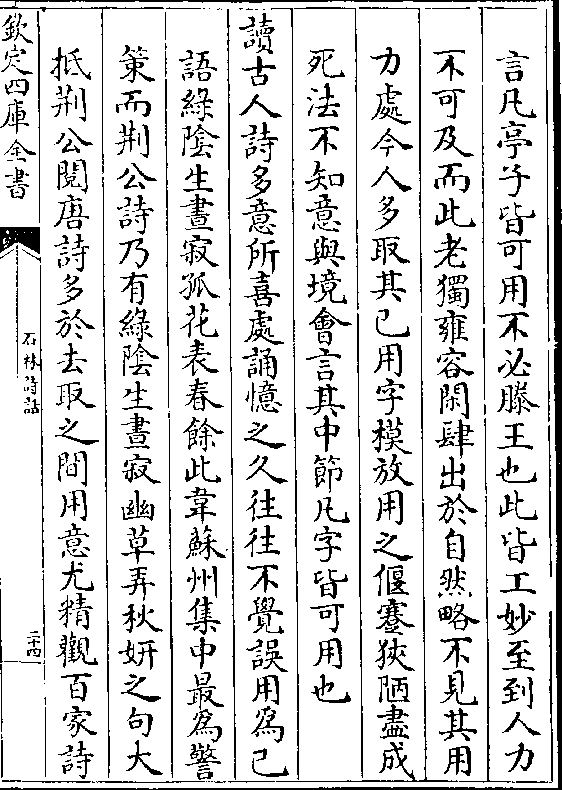 言凡亭子皆可用不必滕王也此皆工妙至到人力
不可及而此老獨雍容閑肆出於自然略不見其用
力處今人多取其已用字模放用之偃蹇狹陋盡成
死法不知意與境會言其中節凡字皆可用也
讀古人詩多意所喜處誦憶之久往往不覺誤用為己
語綠陰生晝寂孤花表春餘此韋蘇州集中最為警
策而荆公詩乃有綠陰生晝寂幽草弄秋妍之句大
抵荆公閱唐詩多於去取之間用意尤精觀百家詩
欽定四庫全書
石林詩話
二十四